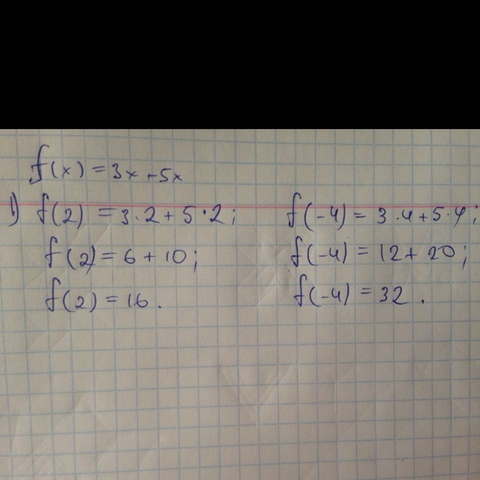 f(x) = 3x + 5x
1) f(2) = 3·2 + 5·2;
f(2) = 6 + 10;
f(2) = 16.
f(-4) = 3·4 + 5·4;
f(-4) = 12 + 20;
f(-4) = 32.